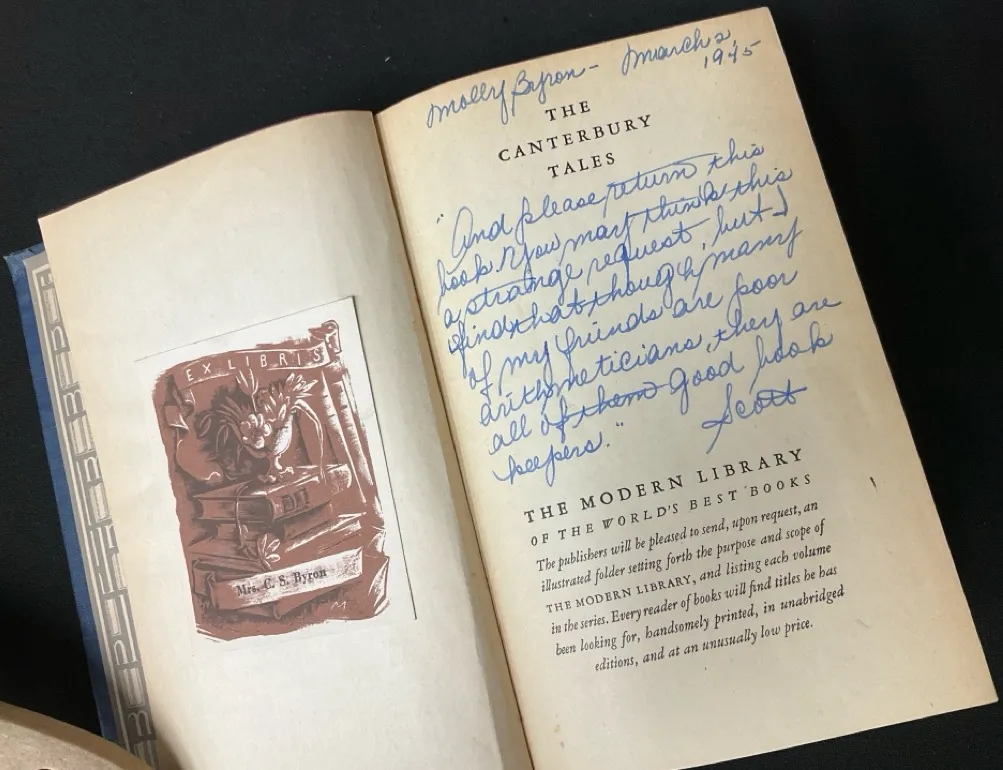 EX LIBRIS
Mrs. C. S. Byron
Molly Byron - March 2,
1945
THE
CANTERBURY
TALES
"And please return this
book. You may think this
a strange request, but I
find that though many
of my friends are poor
arithmeticians, they are
all of them good book
keepers."
Scott
THE MODERN LIBRARY
OF THE WORLD'S BEST BOOKS
The publishers will be pleased to send, upon request, an
illustrated folder setting forth the purpose and scope of
THE MODERN LIBRARY, and listing each volume
in the series. Every reader of books will find titles he has
been looking for, handsomely printed, in unabridged
editions, and at an unusually low price.